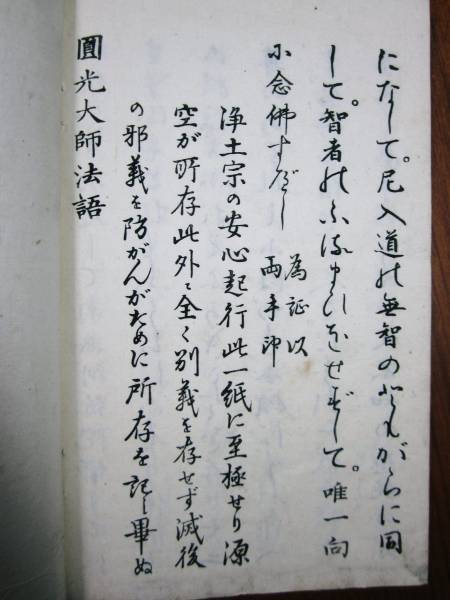 になして。尼入道の無智のともがらに同
して。智者のふるまひをせずして。唯一向
に念佛すべし
為証以
両手印
浄土宗の安心起行此一紙に至極せり源
空が所存此外ニ全く別義を存せず滅後
の邪義を防がんがために所存を記し畢ぬ
圓光大師法語